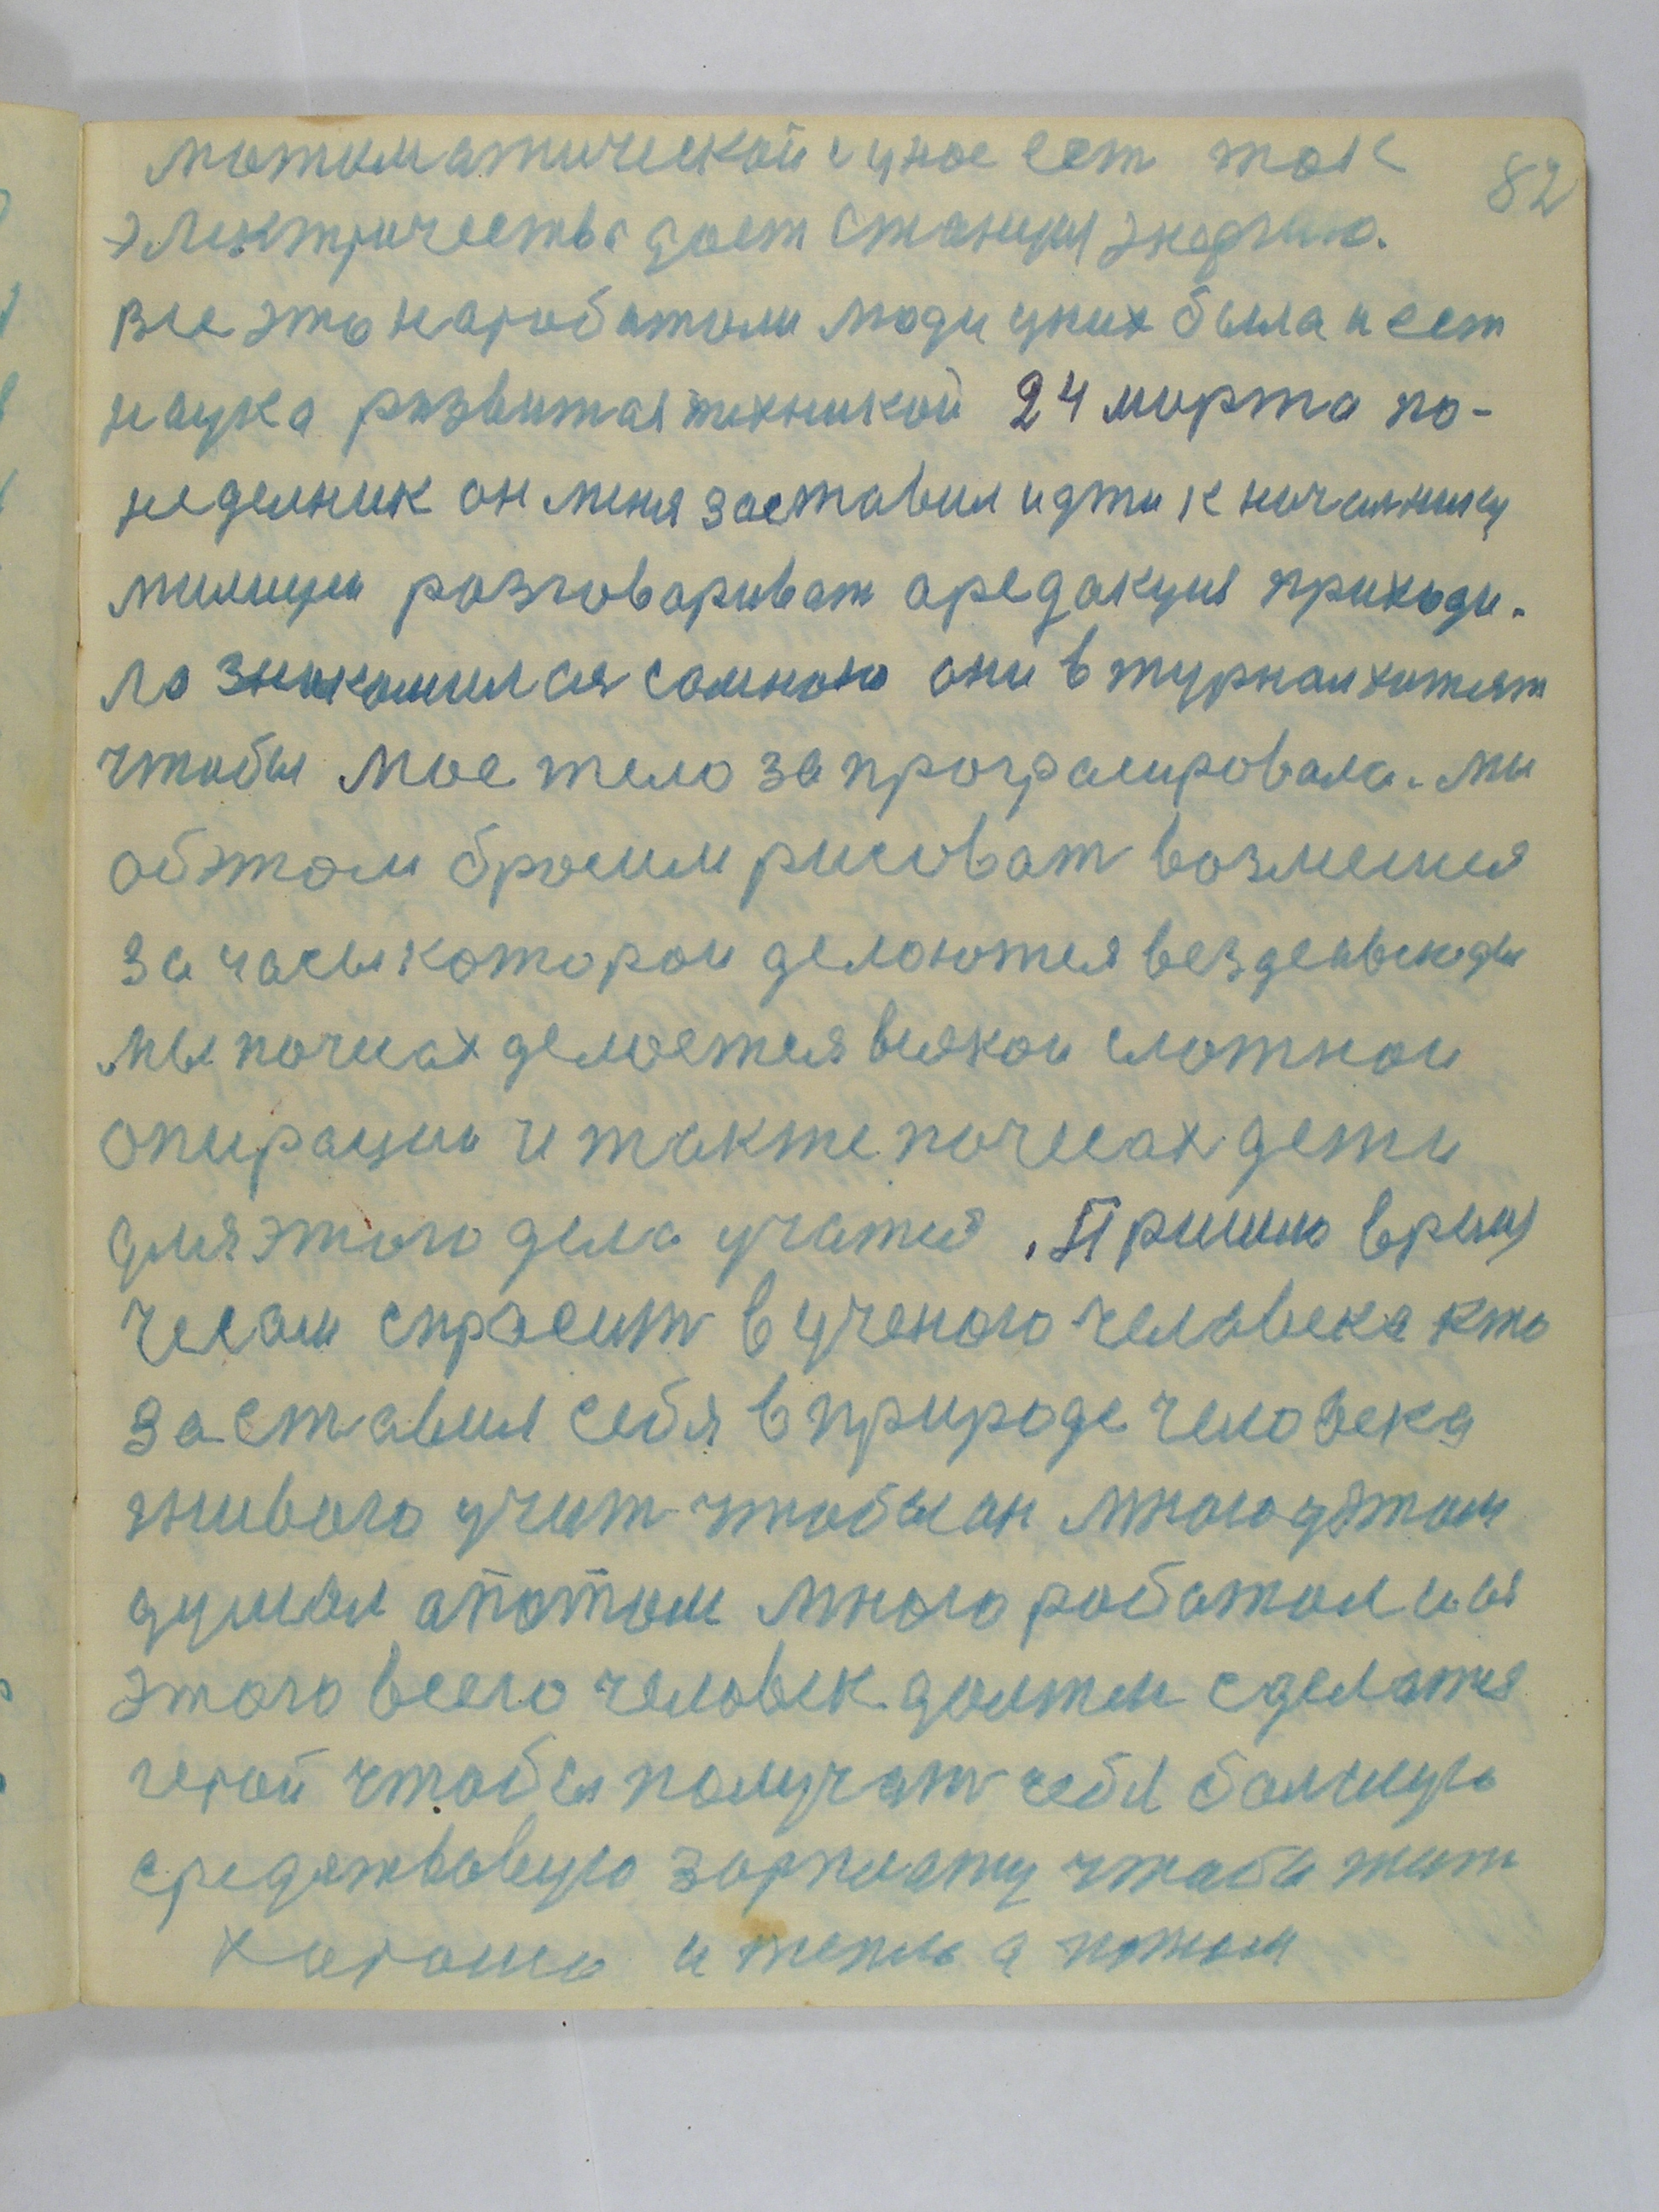 82
матоматической унас ест ток
электричество дает станция энергию.
все это наработали люди уних была и ест
наука развитая техникой 24 марта по-
неделник он меня заставил идти к началнику
милиции разговариват а редакция приходи-
ла знакомился самною они в журнал хотят
чтобы мое тело запрограмировала. мы
обэтом бросим рисоват возмемся
за часы которои делаются везде авсюды
мы почасах делается всякои сложнои
операции и также почасах дети
для этого дела учатся. Пришло время
часам спросит в ученого человека кто
заставил себя в природе человека
живого учит чтобы он много дэтом
думал апотом много работал из
этого всего человек должен сделатся
герой чтобы получат себя болшую
средятвовую зарплату чтобы жит
хорошо и тепло а потом